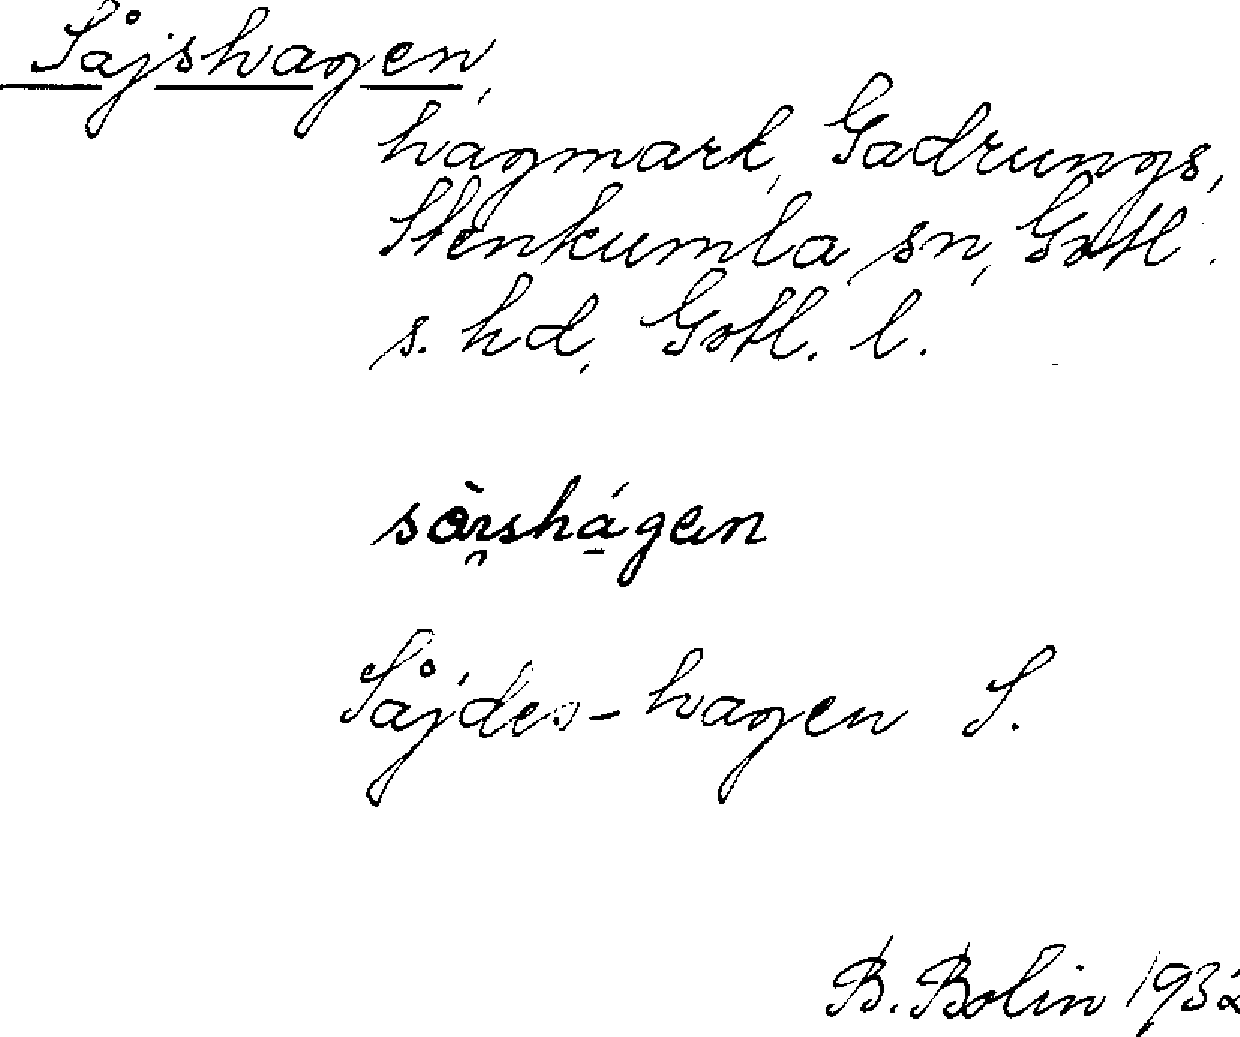 Såjshagen,
hagmark, Gadrungs,
Stenkumla sn, Gotl.
s. hd, Gotl. l.
Såjdes-hagen S.
B. Bolin 1932